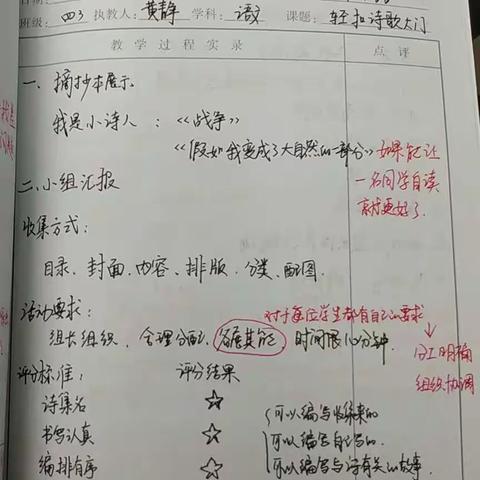 班级：四3 执教人：黄静 学科：语文 课题：轻扣诗歌大门
教学过程实录 点评
一、摘抄本展示
我是小诗人：《战争》
《假如我变成了大自然的一部分》 如果能让
一名同学自读
就更好了.
二、小组汇报
收集方式：
目录、封面、内容、排版、分类、配图.
活动要求： 对于每位学生都有自己的要求
组长组织、合理分配、各尽其能 时间限10分钟.
分工明确
组织协调
评分标准： 评分结果
诗集名 ☆ 可以编写收集来的
书写认真 ☆ 可以编写自己写的.
编排有序 ☆ 可以编写与诗有关的故事.